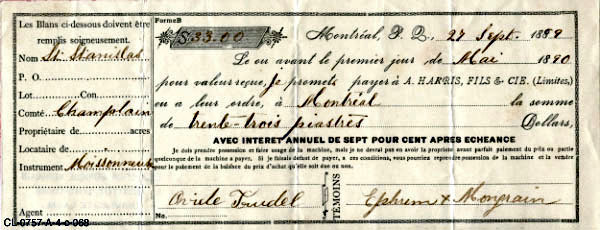 Les Blans ci-dessous doivent être
remplis soigneusement.
Nom St. Stanislas
P. O.
Lot Con.
Comté Champlain
Propriétaire de acres
Locataire de
Instrument Moissonneuse
Agent
Forme B
$ 33.00
Montréal, P. Q., 27 Sept. 1889
Le ou avant le premier jour de Mai 1890
pour valeur reçue, Je promets payer à A. HARRIS, FILS & CIE. (Limitée,)
ou a leur ordre, à Montréal la somme
de trente-trois piastres Dollars,
AVEC INTERET ANNUEL DE SEPT POUR CENT APRES ECHEANCE
Je dois prendre possession et faire usage de la machine, mais je ne devrai pas en avoir la propriété avant parfait paiement du prix ou partie
quelconque de la machine a payer. Si je faisais defaut de payer, a ces conditions, vous pourriez reprendre possession de la machine et la vendre
pour le paiement de la balance du prix d'achat qu'elle soit due ou non.
Ovide Trudel
TÉMOINS
Ephrem x Mongrain
No.
CL-0757-A-4-c-068